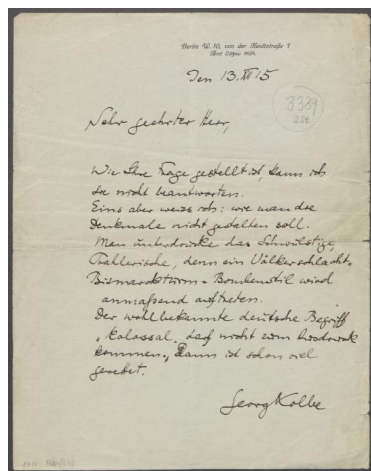 Berlin W. 10, von der Heidtstraße 7
Amt Lützow
Den 13.XII 15
3389
Sehr geehrter Herr,
Wie Ihre Frage gestellt ist, kann ich
sie nicht beantworten.
Eins aber weiss ich: wie man die
Denkmale nicht gestalten soll.
Man unterdrücke das Schwülstige,
Prahlerische, denn ein Völkerschlacht-
Bismarckturm - Bonbonstil wird
anmaßend auftreten.
Der wohlbekannte deutsche Begriff
„Kolossal„ darf nicht zum Ausdruck
kommen, dann ist schon viel
gerettet.
Georg Kolbe